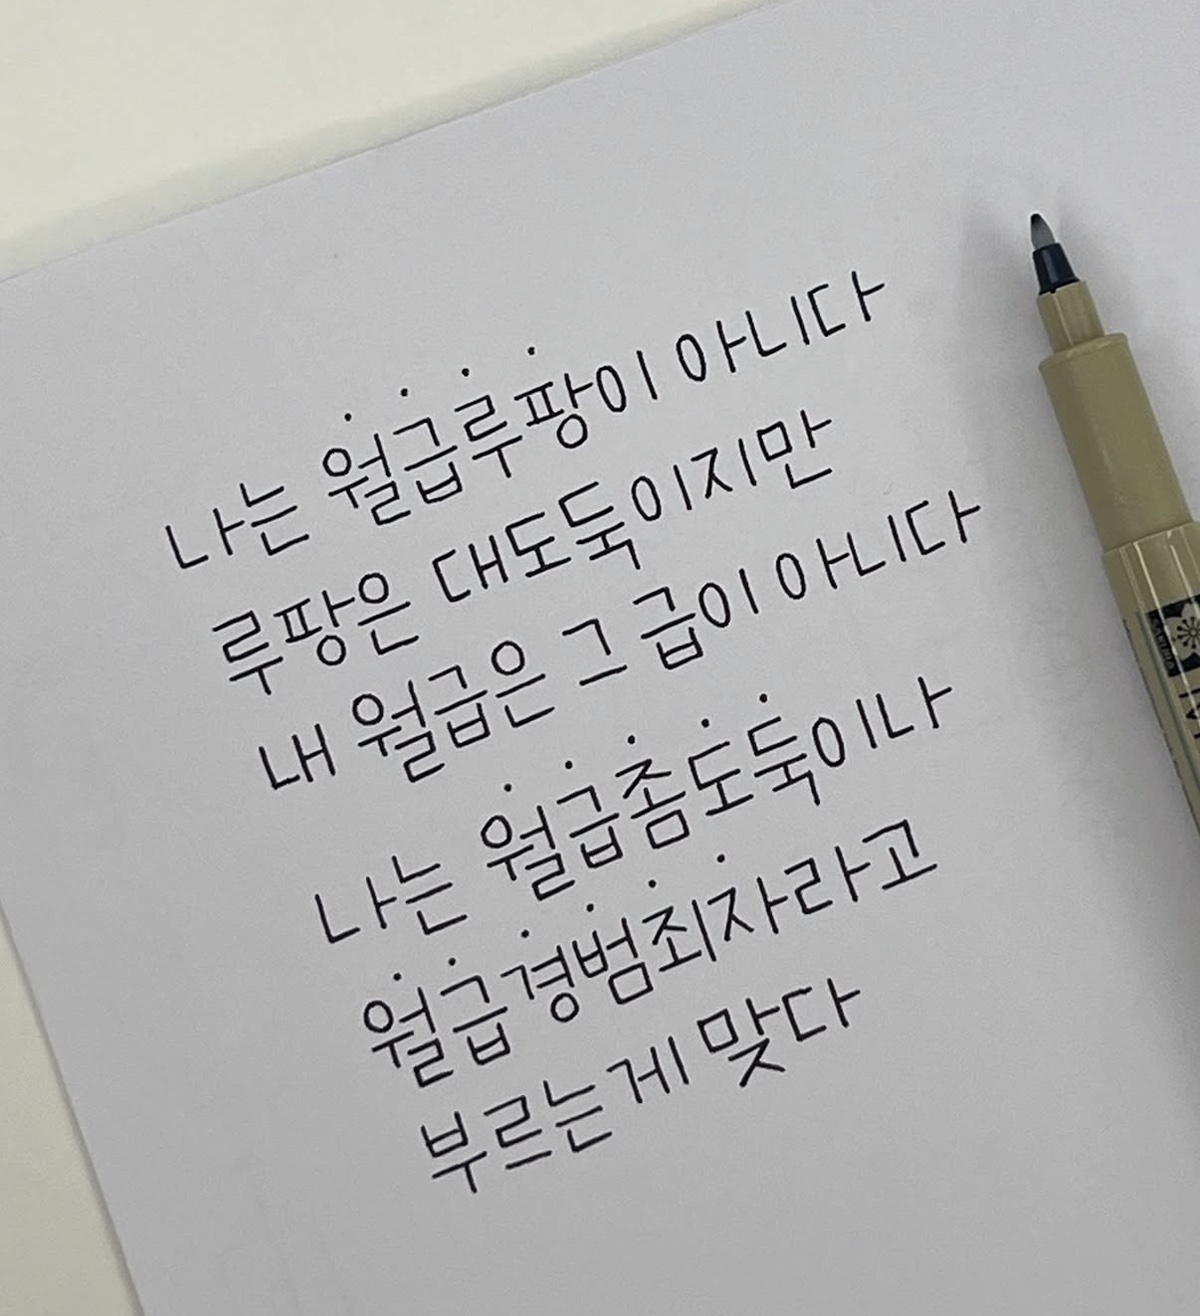 나는 월급루팡이 아니다
루팡은 대도둑이지만
내 월급은 그 급이 아니다
나는 월급좀도둑이나
월급경범죄자라고
부르는게 맞다